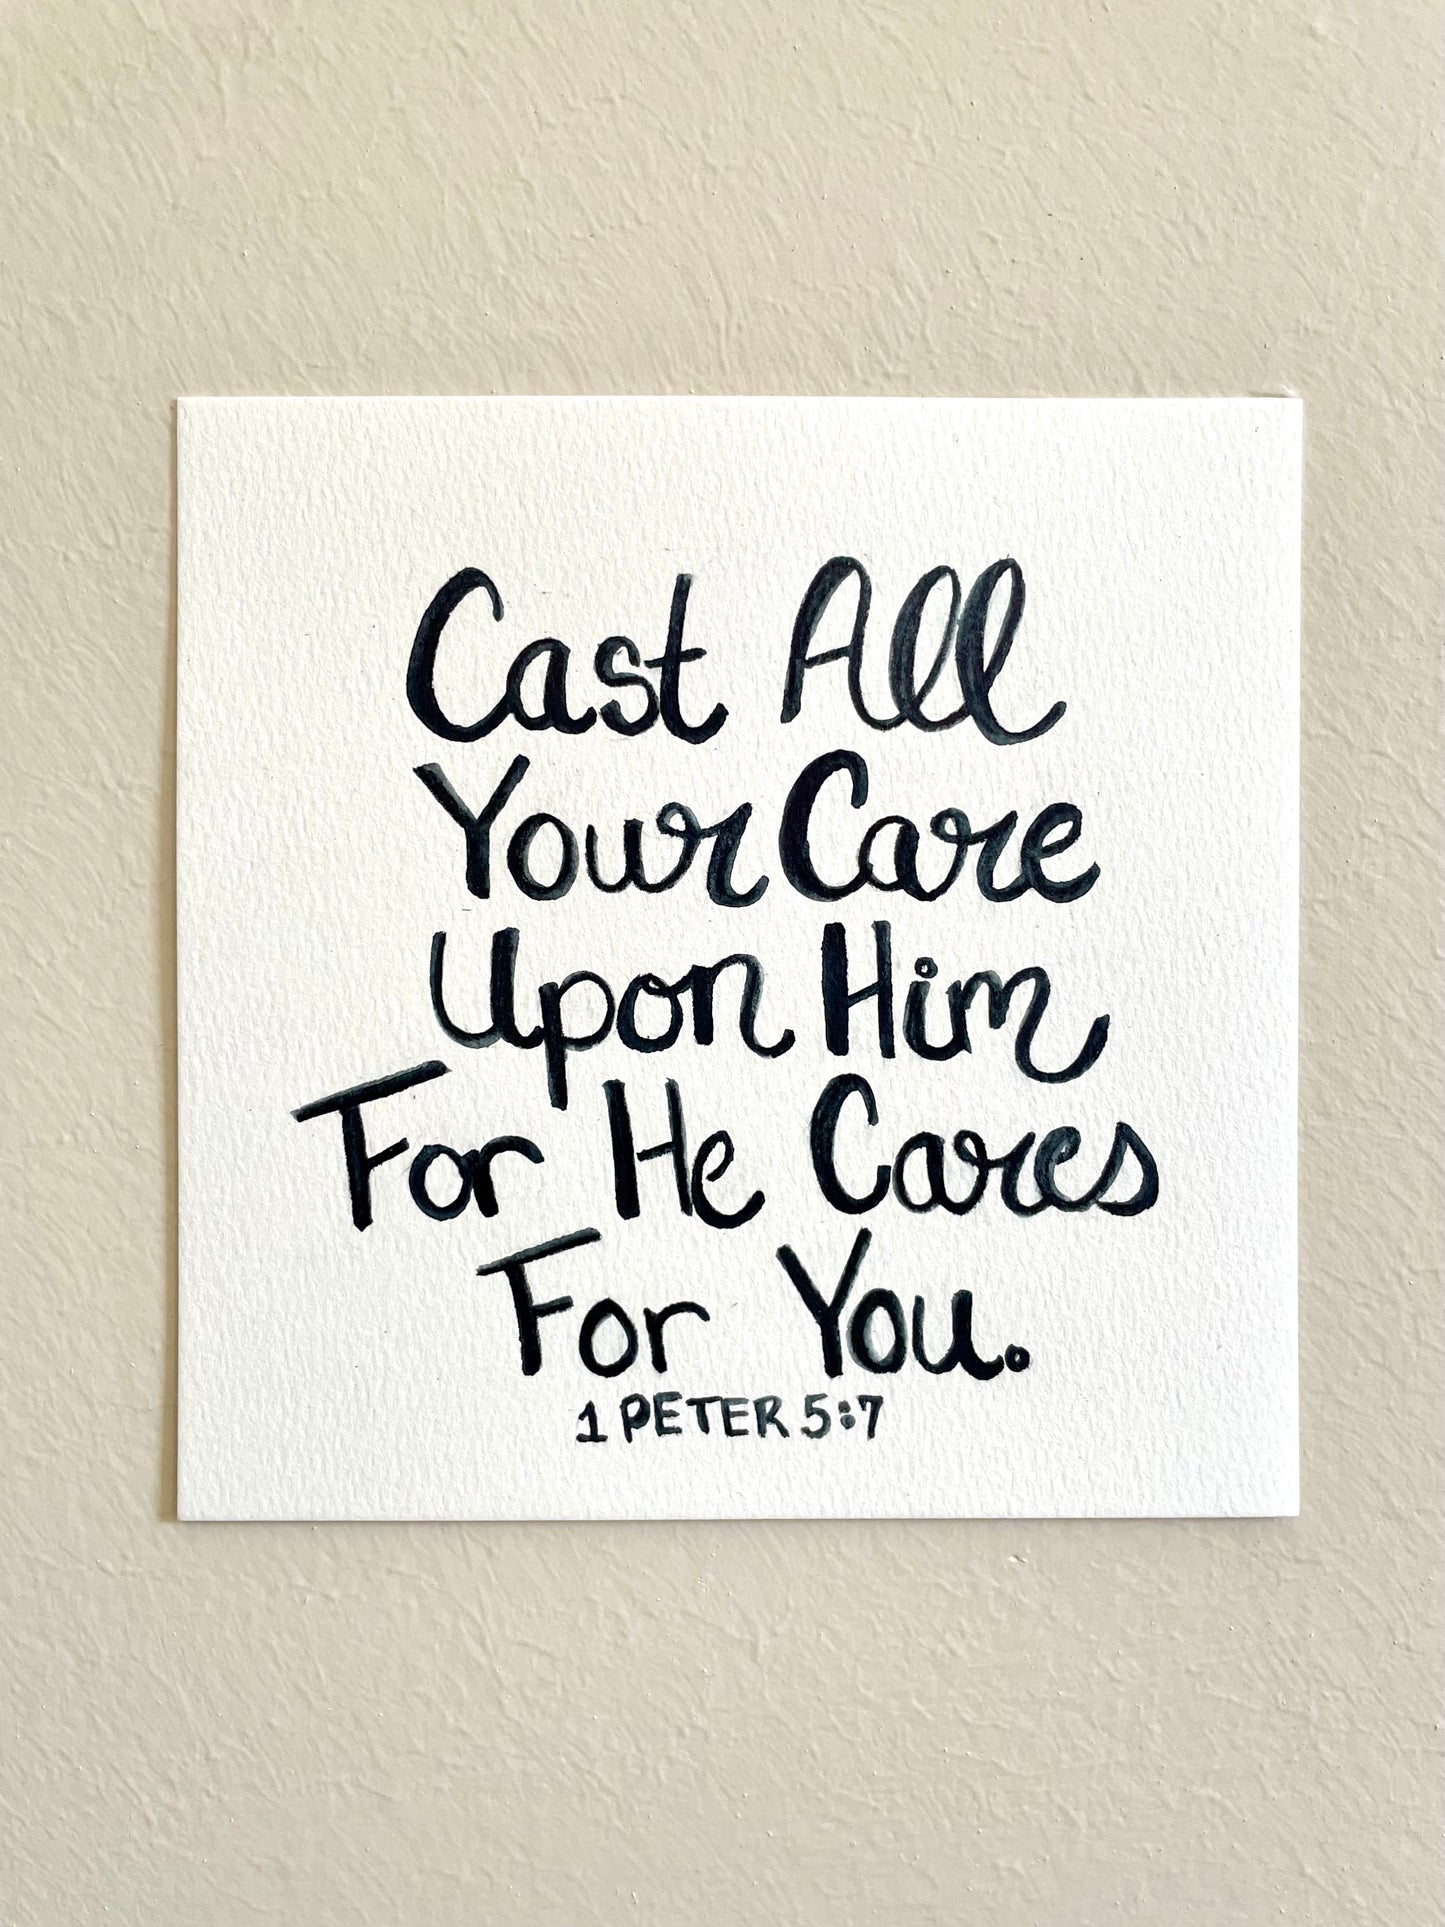 Cast All
Your Care
Upon Him
For He Cares
For You.
1 PETER 5:7